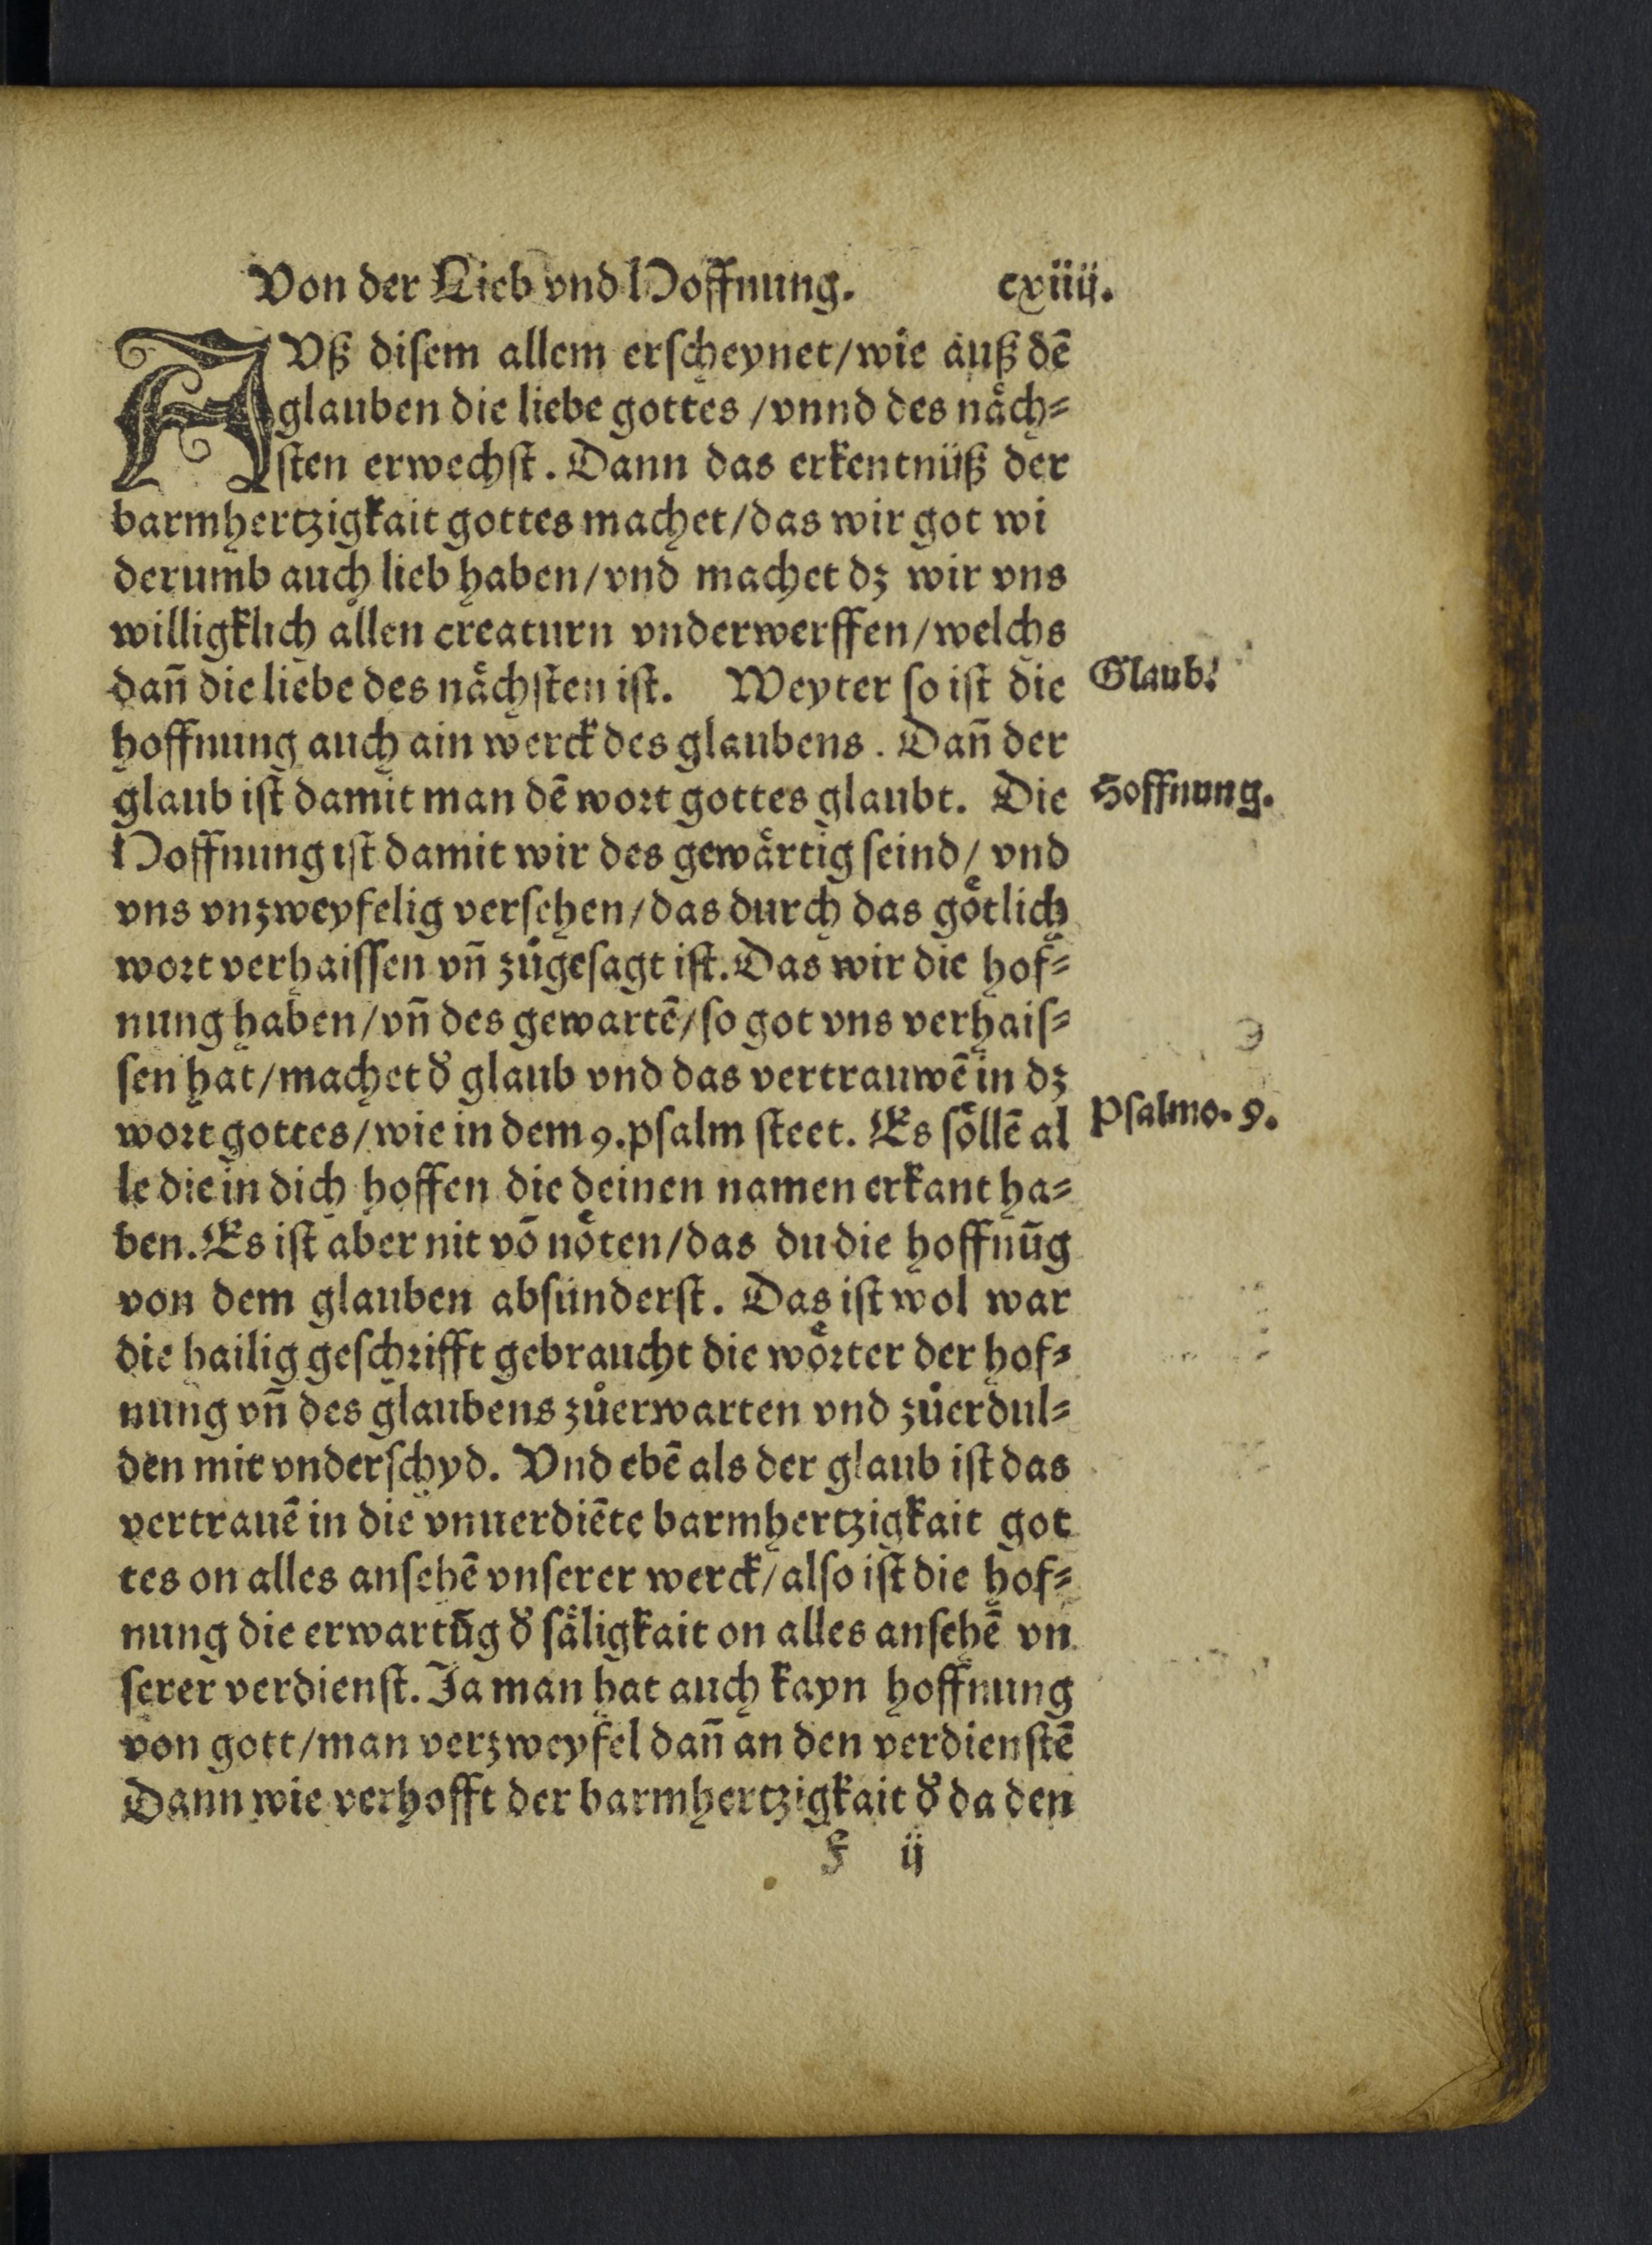 Von der Lieb vnd Hoffnung. cxiiij.
AVß diſem allem erſcheynet/wie auß dē
glauben die liebe gottes /vnnd des naͤch⸗
ſten erwechſt. Dann das erkentnüß der
barmhertzigkait gottes machet/das wir got wi
derumb auch lieb haben/vnd machet dz wir vns
willigklich allen creaturn vnderwerffen/welchs
dañ die liebe des naͤchſten iſt. Weyter ſo iſt die
Glaub.
hoffnung auch ain werck des glaubens. Dañ der
glaub iſt damit man dē wort gottes glaubt. Die
Hoffnung.
Hoffnung iſt damit wir des gewaͤrtig ſeind/ vnd
vns vnzweyfelig verſehen/das durch das goͤtlich
wort verhaiſſen vñ zuͦgeſagt iſt. Das wir die hof⸗
nung haben/vñ des gewartē/ſo got vns verhaiſ⸗
ſen hat/machet d̕ glaub vnd das vertrauwē in dz
wort gottes/wie in dem 9.pſalm ſteet. Es ſoͤllē al
Pſalmo. 9.
le die in dich hoffen die deinen namen erkant ha⸗
ben. Es iſt aber nit vō noͤten/das du die hoffnūg
von dem glauben abſunderſt. Das iſt wol war
die hailig geſchrifft gebraucht die woͤrter der hof⸗
nung vñ des glaubens zuͦerwarten vnd zuͦerdul⸗
den mit vnderſchyd. Vnd ebē als der glaub iſt das
vertrauē in die vnuerdiēte barmhertzigkait got
tes on alles anſehē vnſerer werck/alſo iſt die hof⸗
nung die erwartūg d̕ ſaͤligkait on alles anſehē vn
ſerer verdienſt. Ja man hat auch kayn hoffnung
von gott/man verzweyfel dañ an den verdienſtē
Dann wie verhofft der barmhertzigkait d̕ da den
F ij